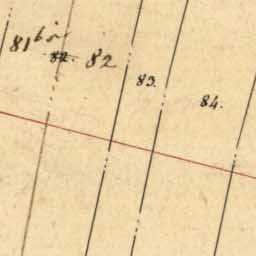 81 b
82.
82
83.
84.